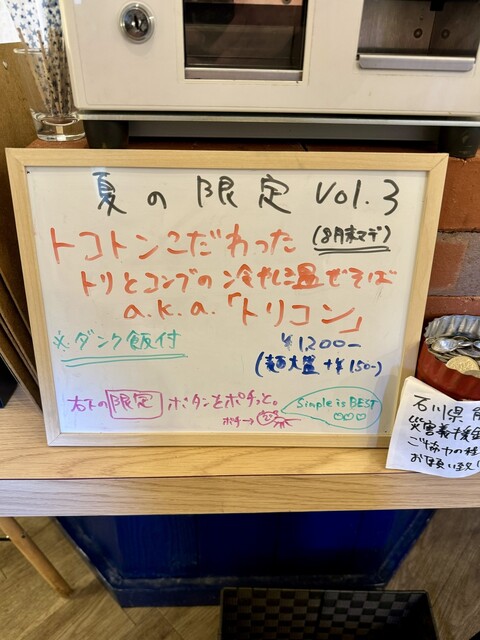 夏の限定 Vol.3
(8月末マデ)
トコトンこだわった
トリとコンブの冷やし混ぜそば
a.k.a.「トリコン」
※ダンク飯付
¥1,200-
(麺大盛 +¥150-)
右下の限定ボタンをポチっと。
ポチ→
Simple is BEST
石川県
災害義援金
ご協力の程
お願い致し